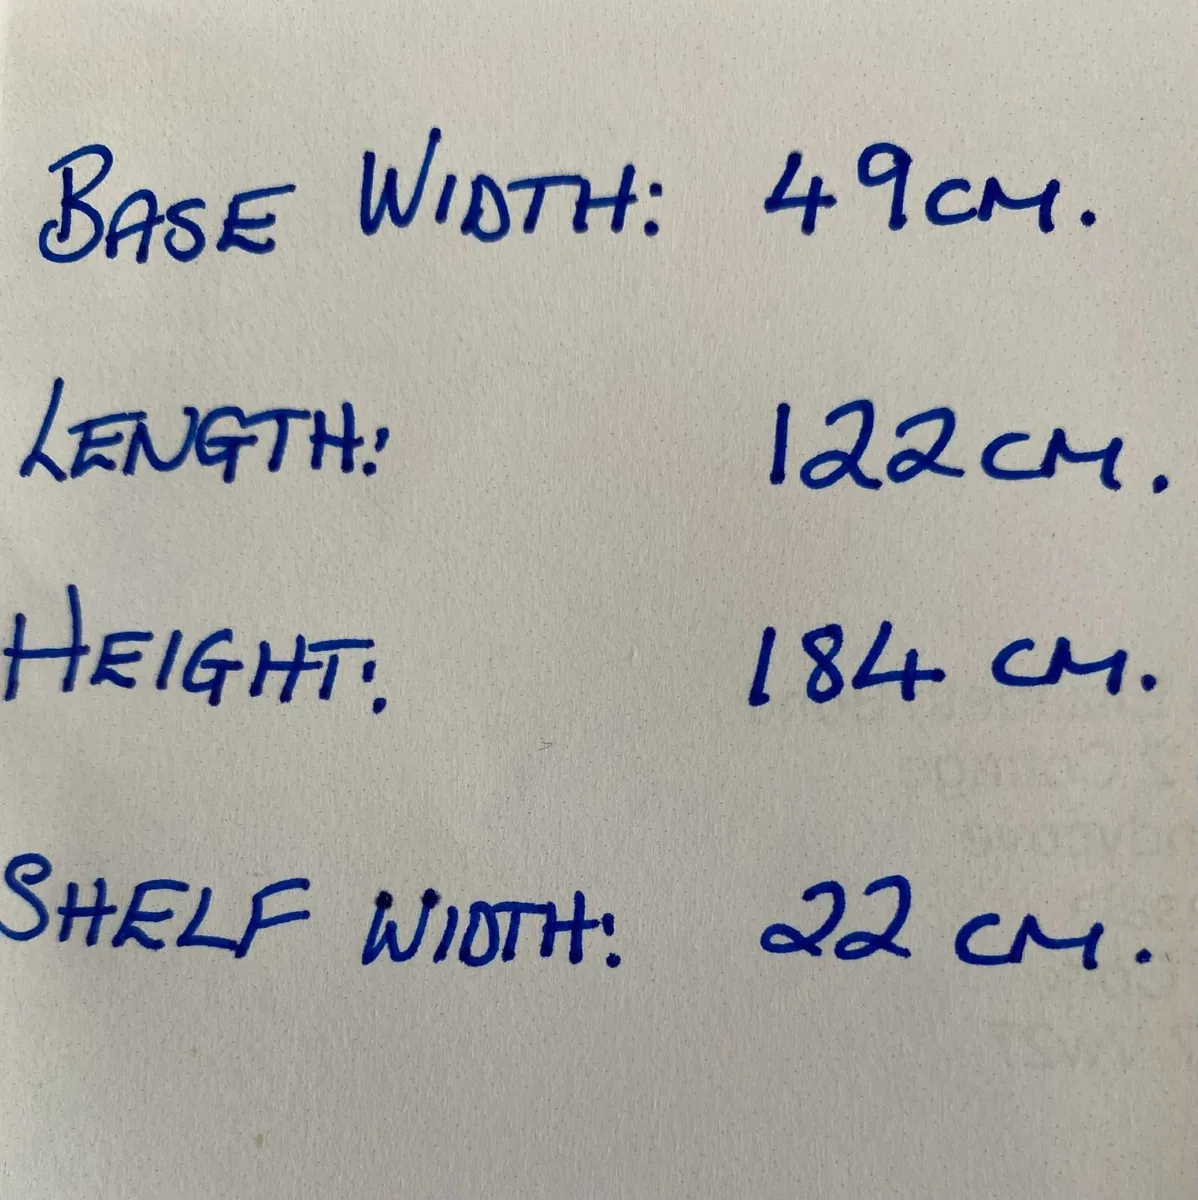 BASE WIDTH: 49CM.
LENGTH: 122CM.
HEIGHT: 184 CM.
SHELF WIDTH: 22 CM.